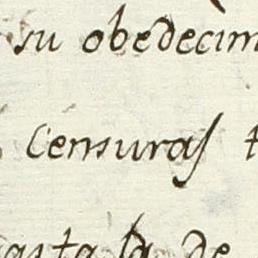 su obedecim
censuras t
asta la de